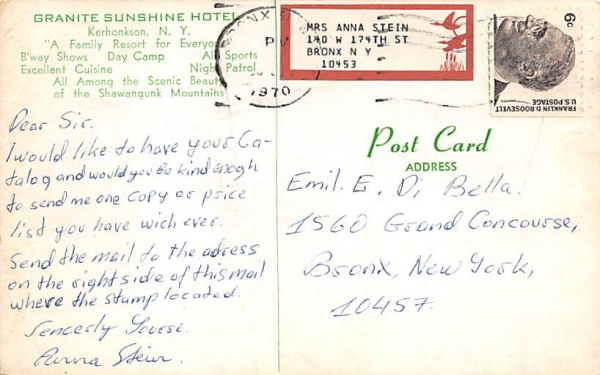 GRANITE SUNSHINE HOTEL
Kerhonkson, N. Y.
"A Family Resort for Everyone"
B'way Shows Day Camp All Sports
Excellent Cuisine Night Patrol
All Among the Scenic Beauty
of the Shawangunk Mountains
BRONX
PM
1970
MRS ANNA STEIN
140 W 174TH ST
BRONX N Y
10453
6c
FRANKLIN D. ROOSEVELT
U.S. POSTAGE
Dear Sir.
I would like to have your Ca-
talog and would you be kind enogh
to send me one copy or price
list you have wich ever.
Send the mail to the adress
on the right side of this mail
where the stamp located.
Sencerly Yourse.
Anna Stein.
Post Card
ADDRESS
Emil. E. Di Bella.
1560 Grand Concourse,
Bronx, New York,
10457.